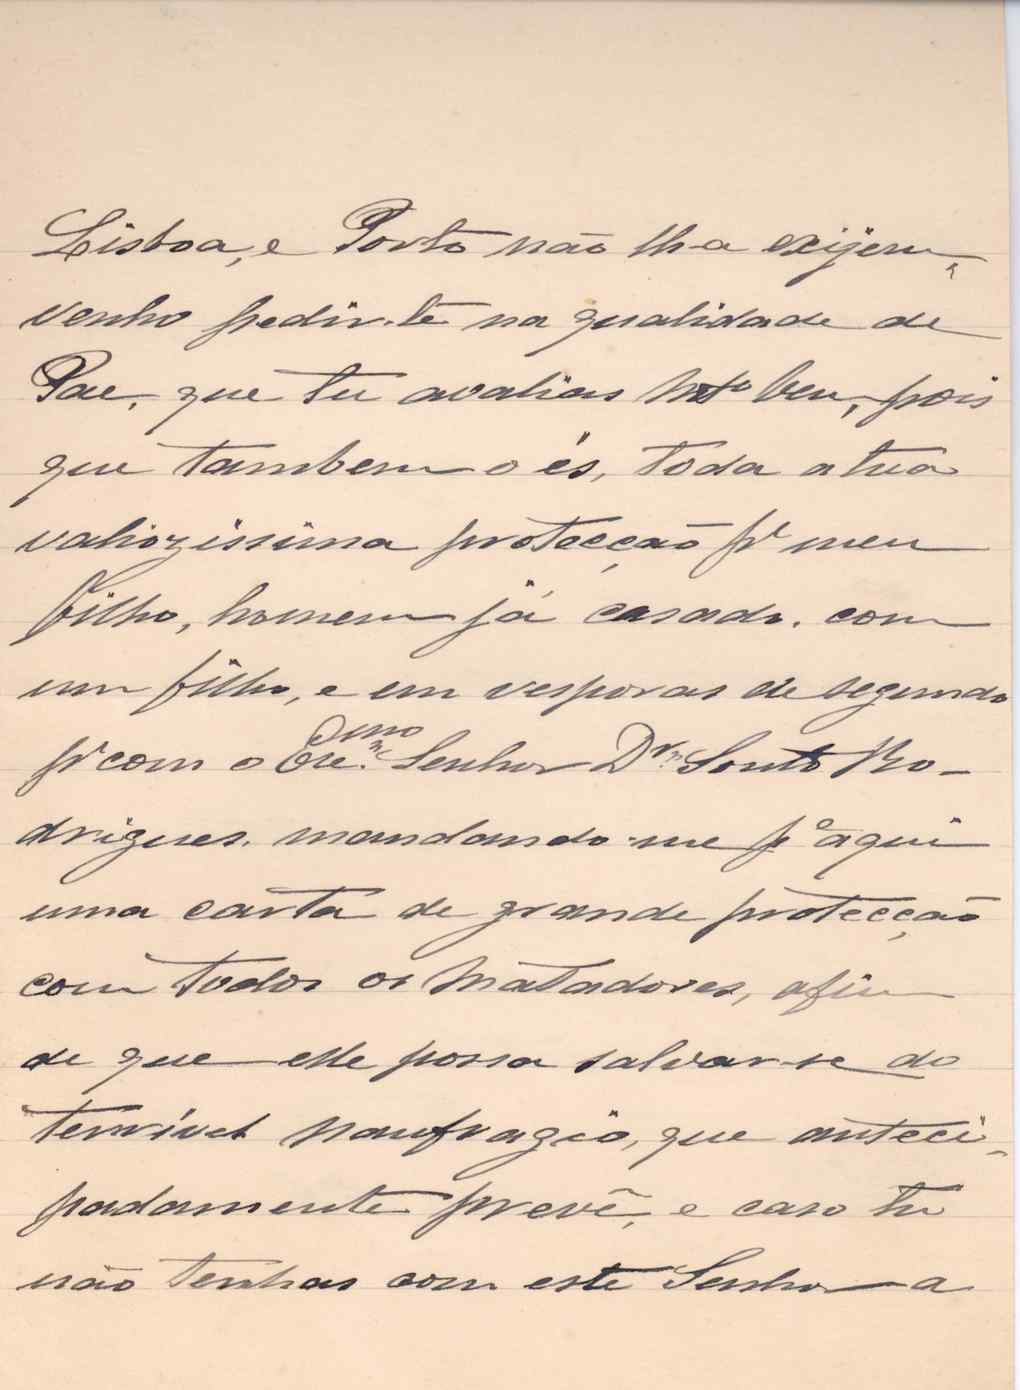 Lisboa, e Porto não lh-a exijem,
venho pedir-te na qualidade de
Pae, que tu avalias mto bem, pois
que tambem o és, toda a tua
valiozissima protecção pª meu
filho, homem já casado, com
um filho, e em vesporas de segundo
pª com o Exc.mo Senhor Dr. Souto Ro-
drigues, mandando-me pª aqui
uma carta de grande protecção
com todos os matadores, afim
de que elle possa salvar-se do
terrivel naufragio, que anteci-
padamente prevê, e caso tu
não tenhas com este Senhor a